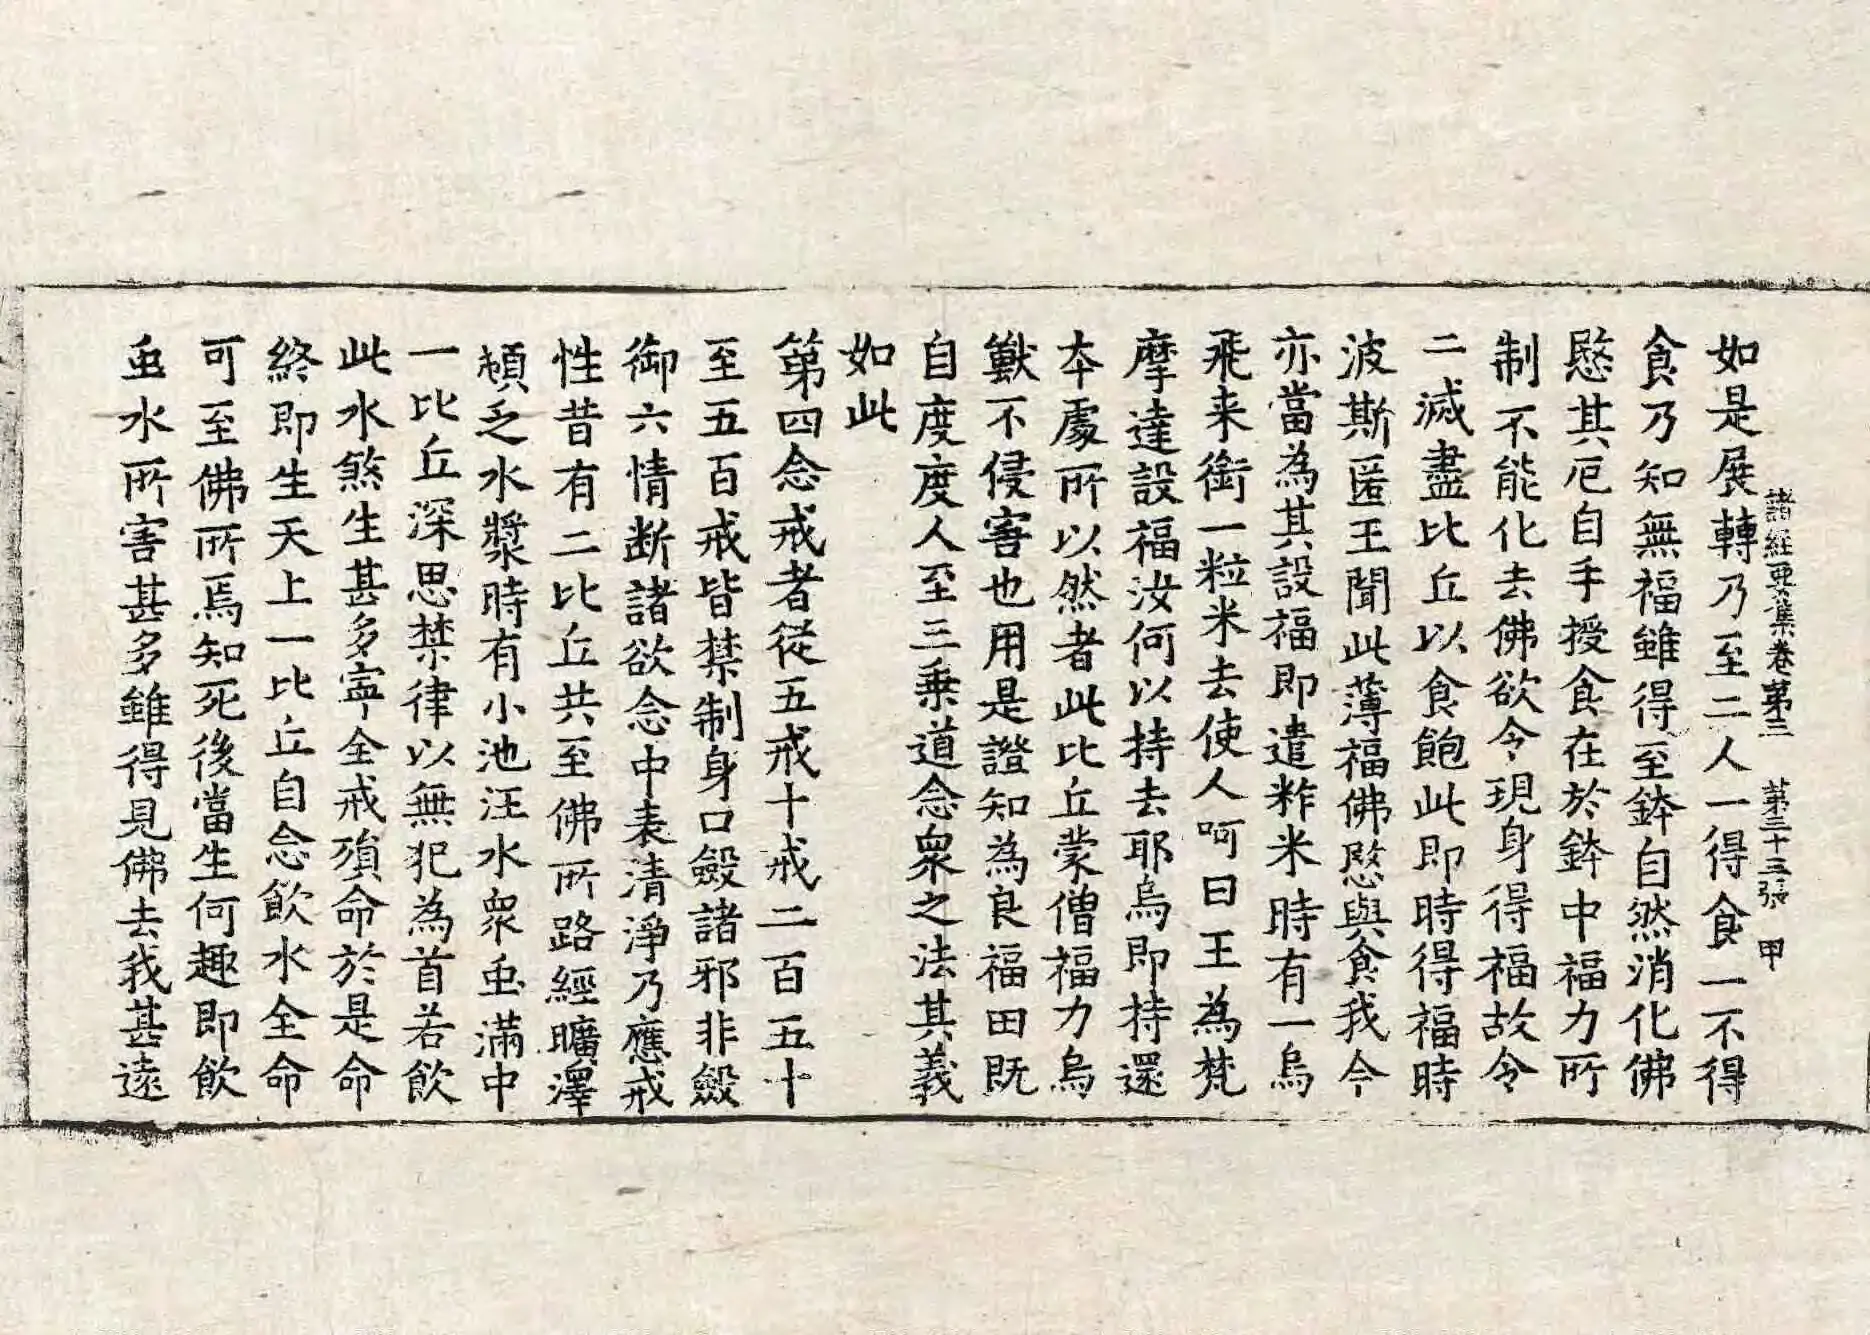 諸經要集卷第三　第三十三張　甲
如是展轉乃至二人一得食一不得
食乃知無福雖得至鉢自然消化佛
愍其厄自手授食在於鉢中福力所
制不能化去佛欲令現身得福故令
二滅盡比丘以食飽此即時得福時
波斯匿王聞此薄福佛愍與食我今
亦當為其設福即遣粼米時有一烏
飛来銜一粒米去使人呵曰王為梵
摩達設福汝何以持去耶烏即持還
本處所以然者此比丘蒙僧福力烏
獸不侵害也用是證知為良福田既
自度度人至三乗道念衆之法其義
如此
第四念戒者從五戒十戒二百五十
至五百戒皆禁制身口斂諸邪非斂
御六情断諸欲念中表清淨乃應戒
性昔有二比丘共至佛所路經曠澤
頓乏水漿時有小池汪水衆虫滿中
一比丘深思禁律以無犯為首若飲
此水煞生甚多寧全戒殞命於是命
終即生天上一比丘自念飲水全命
可至佛所焉知死後當生何趣即飲
虫水所害甚多雖得見佛去我甚遠